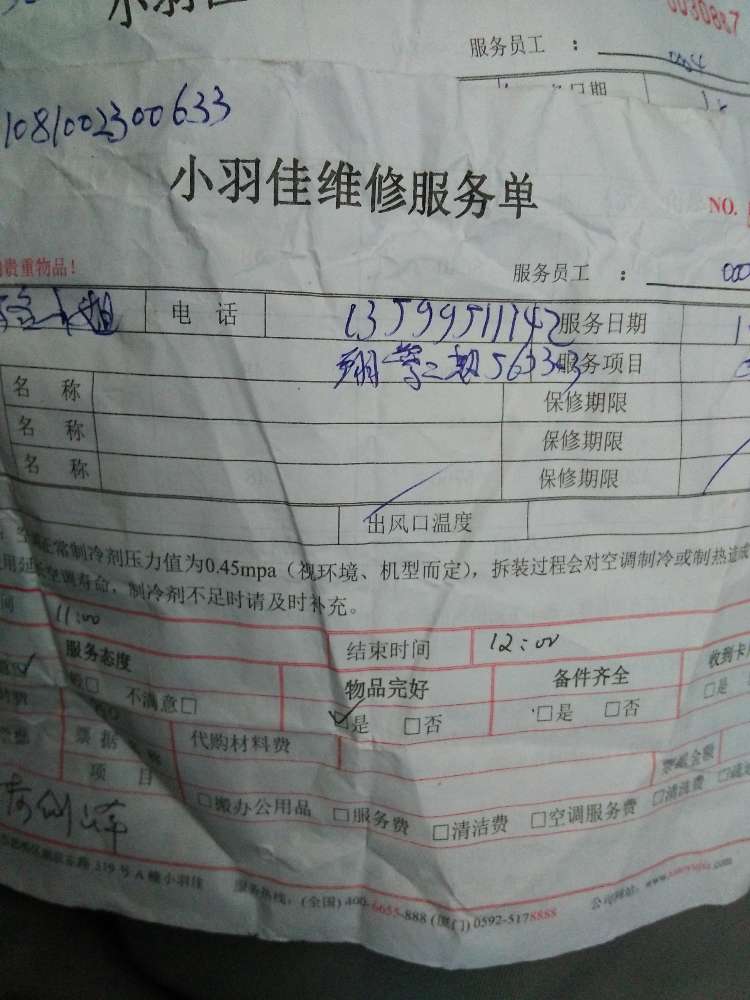 0030887
服务员工 ：
日期
1081002300633
小羽佳维修服务单
NO.
贵重物品！
服务员工 ： 000
小姐 电 话 13599511742 服务日期
翔鹭二期 服务项目
名 称 保修期限
名 称 保修期限
名 称 保修期限
出风口温度
常制冷剂压力值为0.45mpa（视环境、机型而定），拆装过程会对空调制冷或制热造成
用延长空调寿命，制冷剂不足时请及时补充。
间 11:00 结束时间 12:00
服务态度 物品完好 备件齐全 收到卡
般□ 不满意□ □是 □否 □是 □否 □是
票据 代购材料费 票据金额
项 目 □搬办公用品 □服务费 □清洁费 □空调服务费 □清洗费
319号A幢小羽佳 服务热线：(全国) 400-6655-888 (厦门) 0592-5178888 公司网站：www.